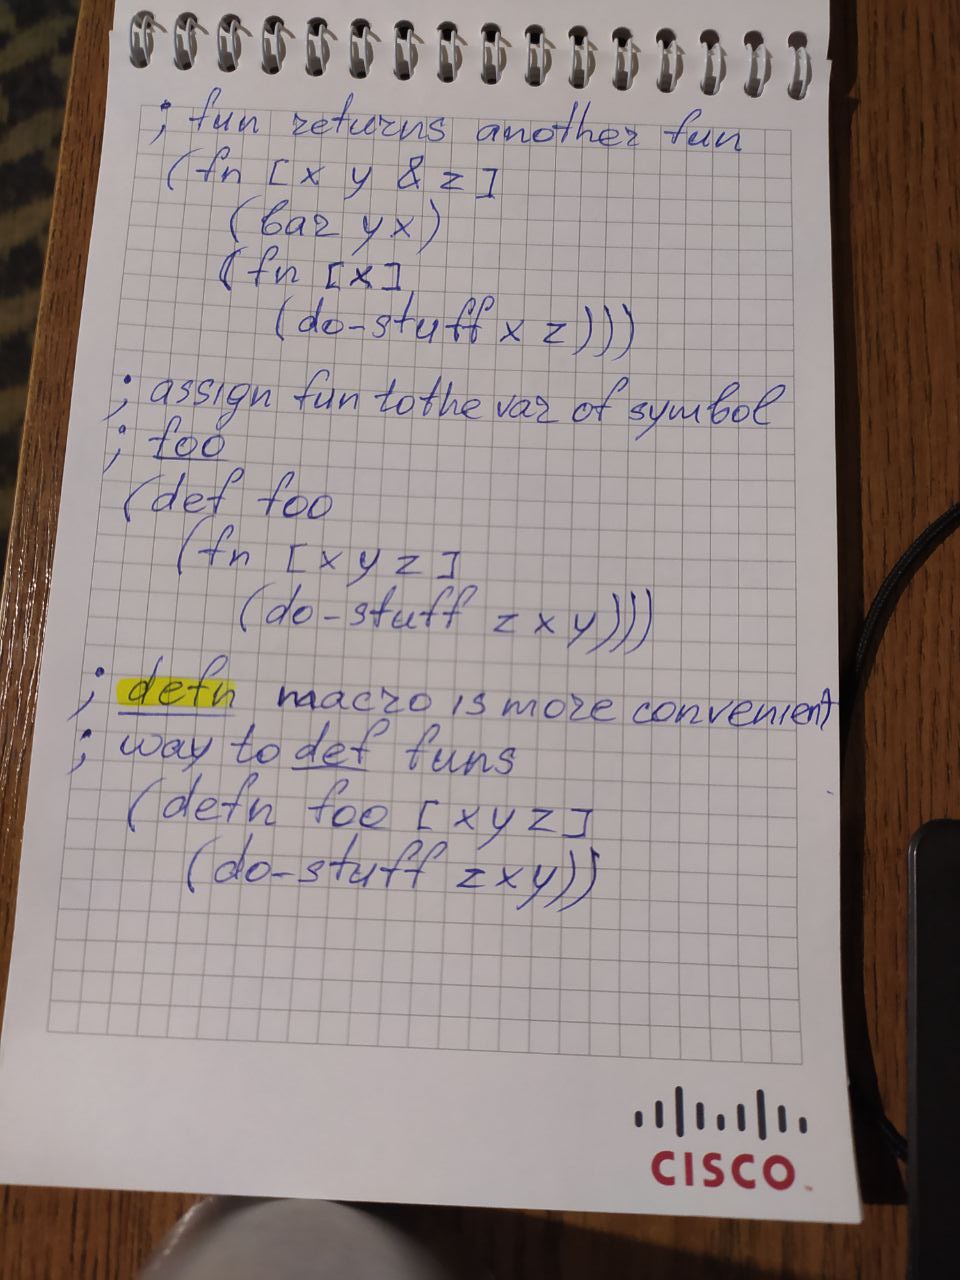 ; fun returns another fun
(fn [x y & z]
(bar y x)
(fn [x]
(do-stuff x z)))
; assign fun to the var of symbol
; foo
(def foo
(fn [x y z]
(do-stuff z x y)))
; defn macro is more convenient
; way to def funs
(defn foo [x y z]
(do-stuff z x y))
CISCO